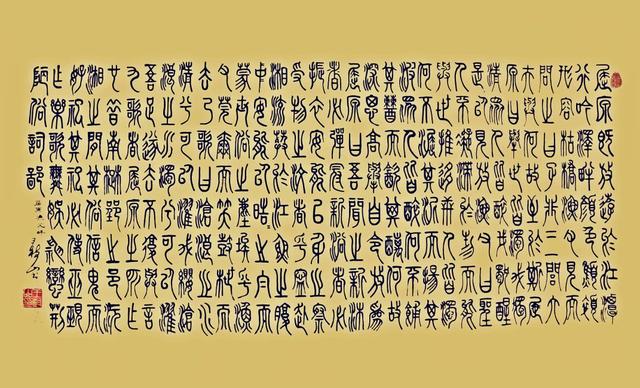 屈原既放遊於江潭
行吟澤畔顏色憔悴
形容枯槁漁父見而
問之曰子非三閭大
夫與何故至於斯屈
原曰舉世皆濁我獨
清眾人皆醉我獨醒
是以見放漁父曰聖
人不凝滯於物而能
與世推移世人皆濁
何不淈其泥而揚其
波眾人皆醉何不餔
其糟而歠其醨何故
深思高舉自令放為
屈原曰吾聞之新沐
者必彈冠新浴者必
振衣安能以身之察
受物之汶汶者乎赴
湘流葬於江魚之腹
中安能以皓皓之白而
蒙世俗之塵埃乎漁
父莞爾而笑鼓枻而
去乃歌曰滄浪之水
清兮可以濯吾纓滄
浪之水濁兮可以濯
吾足遂去不復與言
南郢之邑沅
湘之間其俗信鬼而
好祀其祠
陋俗詞鄙